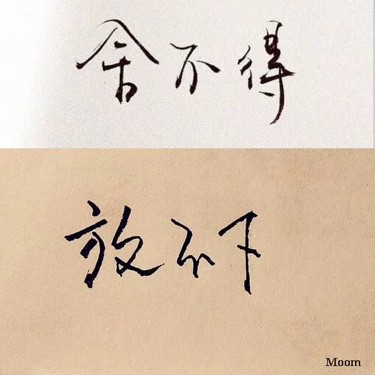 舍不得
放不下
Moom